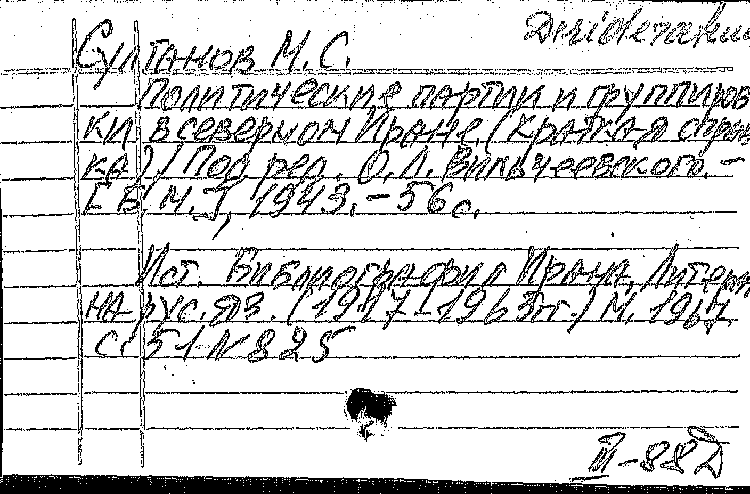 Desiderata
Султанов М. С.
Политические партии и группиров
ки в северном Иране (краткая справ
ка) / Под ред. О. Л. Вильчевского. –
[Б. М.], 1943. – 56 с.
Ист. Библиография Ирана, Литерат
на рус. яз. (1917-1965гг.) М. 1967
с. 51 N 825
III-88Д